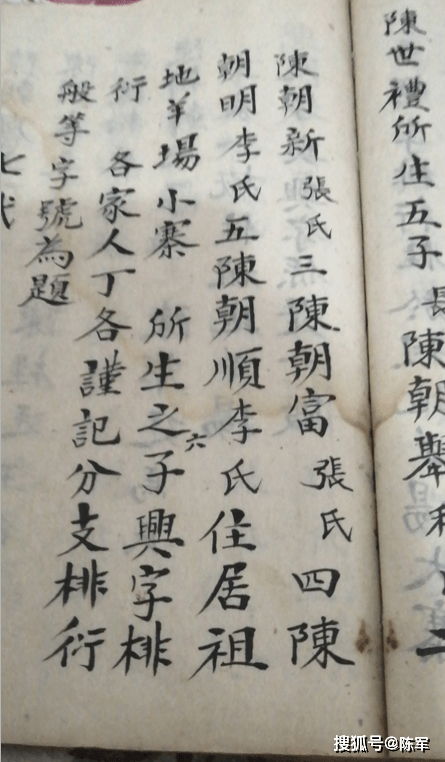 陳世禮所生五子長陳朝舉
二
陳朝新張氏三陳朝富張氏四陳
朝明李氏五陳朝順李氏住居祖
地羊場小寨所生之子興字排
六
衍各家人丁各謹記分支排衍
般等字號為題
七代
搜狐号@陈军